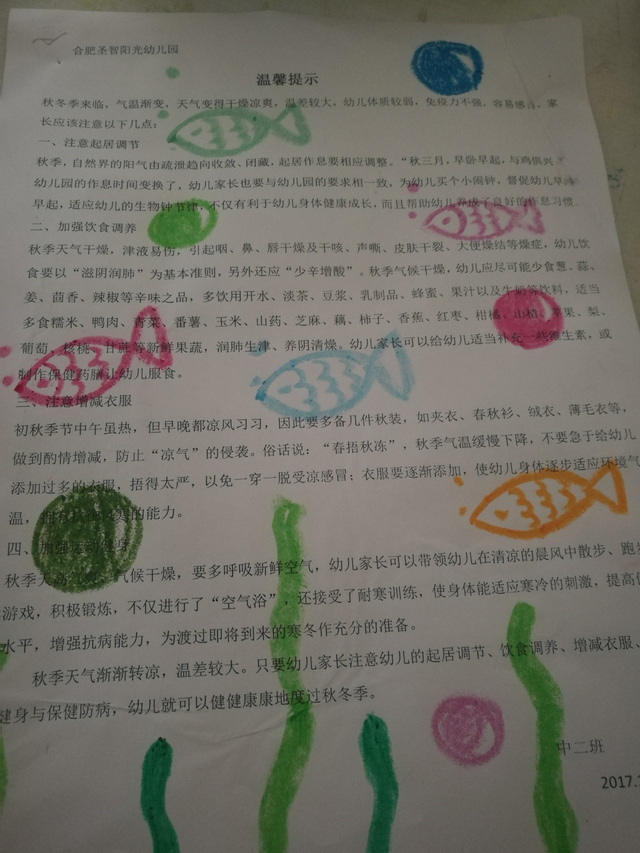 合肥圣智阳光幼儿园
温馨提示
秋冬季来临，气温渐变，天气变得干燥凉爽，温差较大，幼儿体质较弱，免疫力不强，容易感冒，家
长应该注意以下几点：
一、注意起居调节
秋季，自然界的阳气由疏泄趋向收敛、闭藏，起居作息要相应调整。“秋三月，早卧早起，与鸡俱兴
幼儿园的作息时间变换了，幼儿家长也要与幼儿园的要求相一致，为幼儿买个小闹钟，督促幼儿早
早起，适应幼儿的生物钟节律，不仅有利于幼儿身体健康成长，而且帮助幼儿养成了良好的作息习惯
二、加强饮食调养
秋季天气干燥，津液易伤，引起咽、鼻、唇干燥及干咳、声嘶、皮肤干裂、大便燥结等燥症，幼儿饮
食要以“滋阴润肺”为基本准则，另外还应“少辛增酸”。秋季气候干燥，幼儿应尽可能少食葱、蒜、
姜、茴香、辣椒等辛味之品，多饮用开水、淡茶、豆浆、乳制品、蜂蜜、果汁以及牛奶等饮料，适当
多食糯米、鸭肉、青菜、番薯、玉米、山药、芝麻、藕、柿子、香蕉、红枣、柑橘、山楂、苹果、梨、
葡萄、核桃、甘蔗等新鲜果蔬，润肺生津、养阴清燥。幼儿家长可以给幼儿适当补充一些维生素，或
制作保健药膳让幼儿服食。
三、注意增减衣服
初秋季节中午虽热，但早晚都凉风习习，因此要多备几件秋装，如夹衣、春秋衫、绒衣、薄毛衣等，
做到酌情增减，防止“凉气”的侵袭。俗话说：“春捂秋冻”，秋季气温缓慢下降，不要急于给幼儿
添加过多的衣服，捂得太严，以免一穿一脱受凉感冒；衣服要逐渐添加，使幼儿身体逐步适应环境气
温，拥有抗御寒的能力。
四、加强运动健身
秋季天高气爽，气候干燥，要多呼吸新鲜空气，幼儿家长可以带领幼儿在清凉的晨风中散步、跑步
游戏，积极锻炼，不仅进行了“空气浴”，还接受了耐寒训练，使身体能适应寒冷的刺激，提高
水平，增强抗病能力，为渡过即将到来的寒冬作充分的准备。
秋季天气渐渐转凉，温差较大。只要幼儿家长注意幼儿的起居调节、饮食调养、增减衣服、
健身与保健防病，幼儿就可以健健康康地度过秋冬季。
中二班
2017.